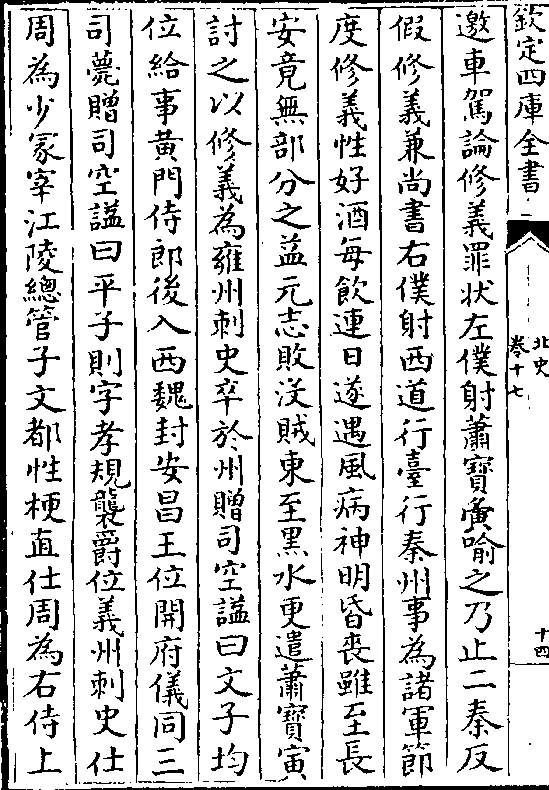 欽定四庫全書
北史
卷十七
十四
邀車駕論修義罪狀左僕射蕭寶夤喻之乃止二秦反
假修義兼尚書右僕射西道行臺行秦州事為諸軍節
度修義性好酒每飲連日遂遇風病神明昏喪雖至長
安竟無部分之益元志敗没賊東至黑水更遣蕭寶寅
討之以修義為雍州刺史卒於州贈司空諡曰文子均
位給事黄門侍郎後入西魏封安昌王位開府儀同三
司薨贈司空諡曰平子則字孝規襲爵位義州刺史仕
周為少冡宰江陵總管子文都性梗直仕周為右侍上